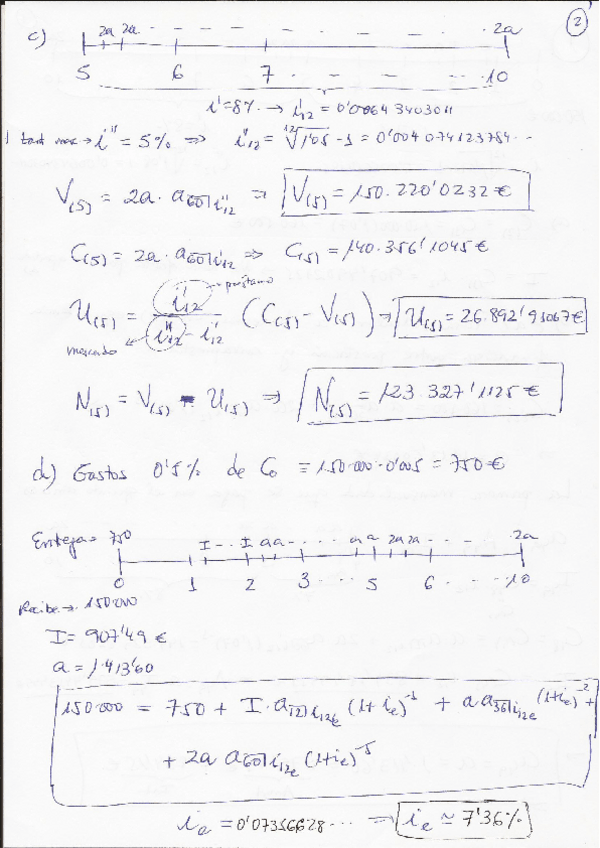 ②
c) 2a 2a - - - - - - 2a
5 6 7 - - - 10
i'=8% → i'₁₂ = 0'0064 3403011
i''= 5% ⇒ i''₁₂ = ¹²√1'05 - 1 = 0'004 074123784...
V(5) = 2a · a60|i''₁₂ ⇒ V(5) = 150.220'0232 €
C(5) = 2a · a60|i'₁₂ ⇒ C(5) = 140.356'1045 €
→ préstamo
U(5) = i'₁₂ / (i''₁₂ - i'₁₂) (C(5) - V(5)) ⇒ U(5) = 26.892'91067 €
mercado
N(5) = V(5) - U(5) ⇒ N(5) = 123.327'1125 €
d) Gastos 0'5% de C₀ = 150.000·0'005 = 750 €
Entrega = 750 I ·· I a a ···· a a 2a 2a ··· 2a
0 1 2 3 ··· 5 6 ··· 10
Recibe → 150.000
I = 907'49 €
a = 1.413'60
150.000 = 750 + I · a12|i12e (1+ie)⁻¹ + a a36|i12e (1+ie)⁻² +
+ 2a a60|i12e (1+ie)⁻⁵
ie = 0'07356628 ··· ⇒ ie ≃ 7'36%